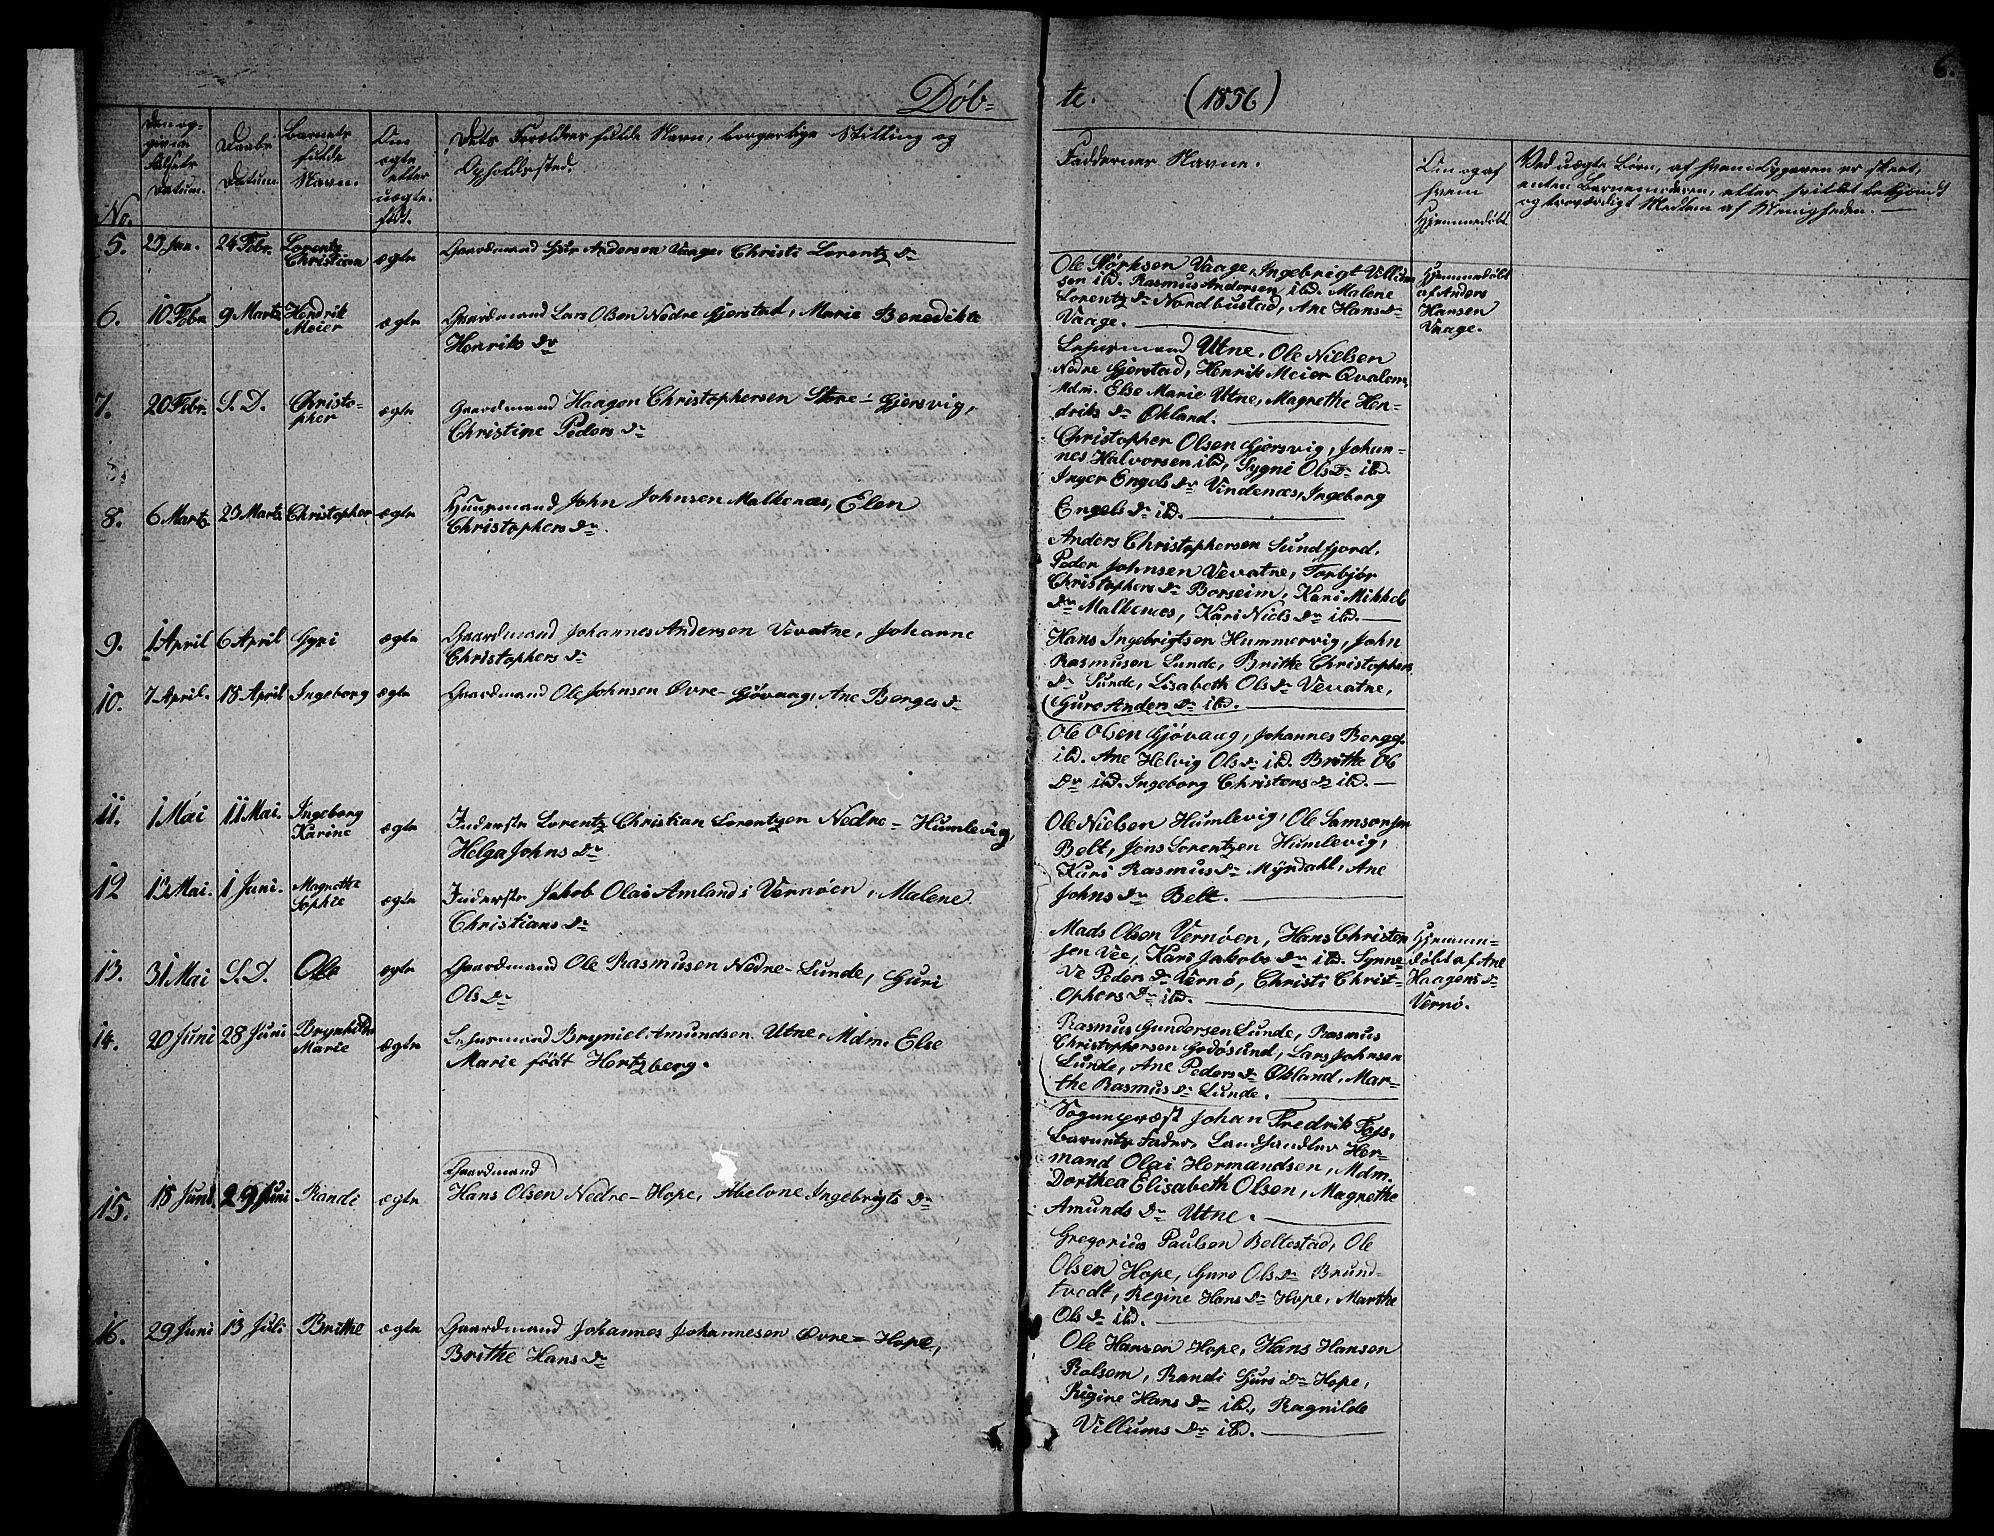 6.
Døb=
te. (1856)
No.
Den op-
givne
Fødsels
Datum.
Daabs
Datum.
Barnets
fulde
Navn.
Om
ægte
eller
uægte
født.
Dets Forældres fulde Navn, borgerlige Stilling og
Opholdssted.
Faddernes Navne.
Om og af
hvem
Hjemmedøbt
Ved uægte Børn, af hvem Opgaven er skeet,
enten Barnemoderen, eller hvilket bekjendt
og troværdigt Medlem af Menigheden.
5. 23 Jan. 24 Febr. Lorentz
Christian ægte Gaardmand Sjur Andersen Vaage. Christi Lorentz Dr
Ole Størksen Vaage, Ingebrigt Villum
sen ibd. Rasmus Andersen ibd. Malene
Lorentz Dr Nordbustad, Ane Hans Dr
Vaage.
Hjemmedøbt
af Anders
Hansen
Vaage.
6. 10 Febr. 9 Marts Hendrik
Meier ægte Gaardmand Lars Olsen Nedre Gjerstad, Marie Benedikte
Henriks Dr
Lensmand Utne, Ole Nielsen
Nedre Gjerstad, Henrik Meier Qvalem,
Mdm. Else Marie Utne, Magrethe Hen-
driks Dr Økland.
7. 20 Febr. S. D. Christo-
pher ægte Gaardmand Haagon Christophersen Store- Gjersvig,
Christine Peders Dr
Christopher Olsen Gjersvig, Johan-
nes Halvorsen ibd, Sygni Ols Dr ibd.
Inger Engels Dr Vindenæs, Ingeborg
Engels Dr ibd.
8. 6 Marts 23 Marts Christopher ægte Huusmand John Johnsen Malkenæs, Elen
Christophers Dr.
Anders Christophersen Sundfjord,
Peder Johnsen Vevatne, Torbjør
Christophers Dr Borseim, Kari Mikkels
Dr Malkenæs, Kari Niels Dr ibd.
9. 1 April 6 April Gyri ægte Gaardmand Johannes Andersen Vevatne, Johanne
Christophers Dr
Hans Ingebrigtsen Hummervig, John
Rasmusen Lunde, Brithe Christophers
Dr Lunde, Lisabeth Ols Dr Vevatne,
Guro Anders Dr ibd.
10. 7 April. 18 April Ingeborg ægte Gaardmand Ole Johnsen Øvre- Gjøvaag, Ane Berges Dr
Ole Olsen Gjøvaag, Johannes Berges.
ibd. Ane Helvig Ols Dr ibd. Brithe Ols
Dr ibd. Ingeborg Christens Dr ibd.
11. 1 Mai 11 Mai. Ingeborg
Karine ægte Inderste Lorentz Christian Lorentzen Nedre- Humlevig,
Helga Johns Dr
Ole Nielsen Humlevig, Ole Samsonsen
Belt, Jens Lorentzen Humlevig,
Kari Rasmus Dr Myrdahl, Ane
Johns Dr Belt.
12 13 Mai. 1 Juni. Magrethe
Sophie ægte Inderste Jakob Olai Amland i Vernøen, Malene
Christians Dr
Mads Olsen Vernøen, Hans Christen
sen Vee, Kari Jakobs Dr ibd. Synne-
ve Peders Dr Vernø, Christi Christ-
ophers Dr ibd.
Hjemme-
døbt af Ane
Haagens Dr
Vernø.
13. 31 Mai S. D. Ole ægte Gaardmand Ole Rasmusen Nedre- Lunde, Guri
Ols Dr
Rasmus Gundersen Lunde, Rasmus
Christophersen Godøsund, Lars Johnsen
Lunde, Ane Peders Dr Økland, Mar-
the Rasmus Dr Lunde.
14. 20 Juni 28 Juni Brynhilda
Marie ægte Lensmand Bryniel Amundsen Utne, Mdm. Else
Marie født Hertzberg.
Sogneprest Johan Fredrik Foss,
Barnets Fader, Landhandler Her-
mand Olai Hermandsen, Mdm.
Dorthea Elisabeth Olsen, Magrethe
Amunds Dr Utne.
15. 18 Juni. 29 Juni Randi ægte Gaardmand
Hans Olsen Nedre- Hope, Abelone Ingebrigts Dr
Gregorius Paulsen Beltestad, Ole
Olsen Hope, Guro Ols Dr Brund-
tvedt, Regine Hans Dr Hope, Marthe
Ols Dr ibd.
16. 29 Juni 13 Juli Brithe ægte Gaardmand Johannes Johannesen Øvre- Hope,
Brithe Hans Dr
Ole Hansen Hope, Hans Hansen
Rolsom, Randi Guro Dr Hope,
Regine Hans Dr ibd, Ragnilde
Villums Dr ibd.